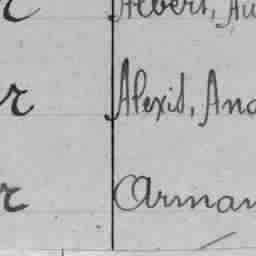 r Albert, Au
r Alexis, And
r Arman